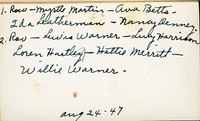 1. Row — Myrtle Martin — Ava Betts —
Ida Leatherman — Nancy Denney
2. Row — Lewis Warner — Lucy Harrison
Loren Hartley — Hattie Merritt —
Willie Warner.
Aug 24 - 47